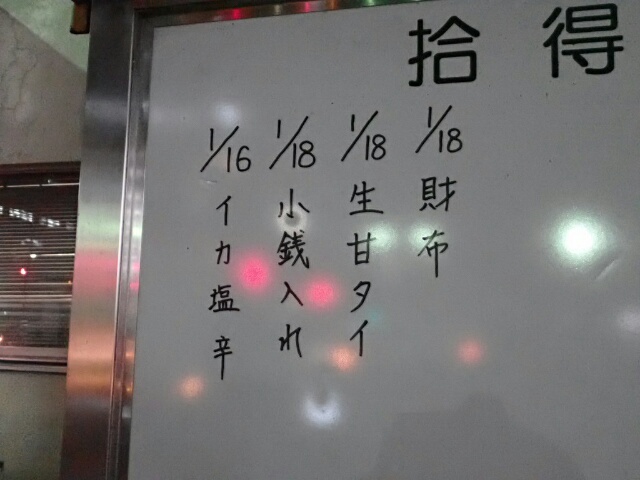 拾得
1/18 財布
1/18 生甘タイ
1/18 小銭入れ
1/16 イカ塩辛